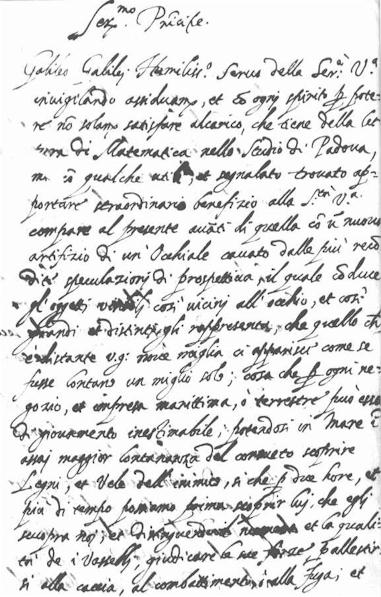 Ser.mo Principe.
Galileo Galilej Humiliss.o Servo della Ser.a V.a
invigilando assiduam.te, et cõ ogni spirito p pote-
re nõ solam.te satisfare al carico, che tiene della let-
tura di Matematica nello Studio di Padova,
cõ qualche utile, et segnalato trovato ap-
portare straordinario benefizio alla S.ta V.a
compare al presente avãti di quella cõ ũ nuovo
artifizio di un' Occhiale cavato dalle più recõ-
dite speculazioni di prospettiva, il quale cõduce
gl'oggetti visibili così vicini all'occhio, et così
grandi et distinti gli rappresenta, che quello ch'
è distante v.g. nove miglia ci apparisce come se
fusse lontano un miglio solo; cosa che p ogni ne-
gozio, et impresa marittima, o terrestre può esser
di giovamento inestimabile, potendosi in Mare ĩ
assai maggior lontananza del consueto scoprire
Legni, et Vele dell'inimico, sì che p due hore, et
più di tempo possiamo prima scoprir lui, che egli
scuopra noi, et distinguendo il numero et la quali-
tà de i Vasselli, giudicare le sue forze pallestir-
si alla caccia, al combattimento, o alla fuga; et